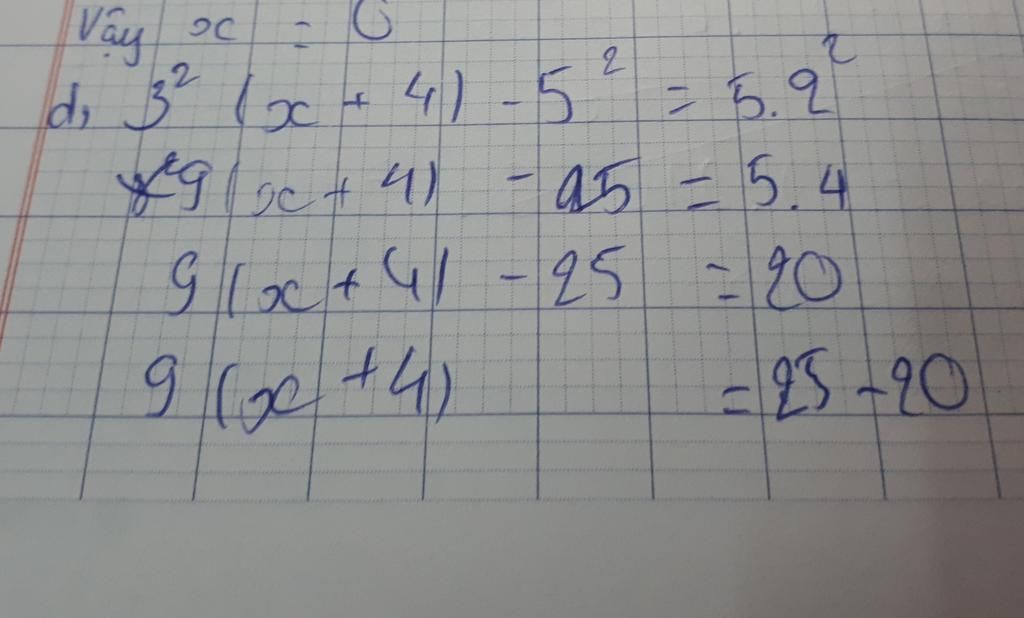 Vậy x = 6
d, 3² (x + 4) - 5² = 5.2²
9 (x + 4) - 25 = 5.4
9 (x + 4) - 25 = 20
9 (x + 4) = 25 - 20